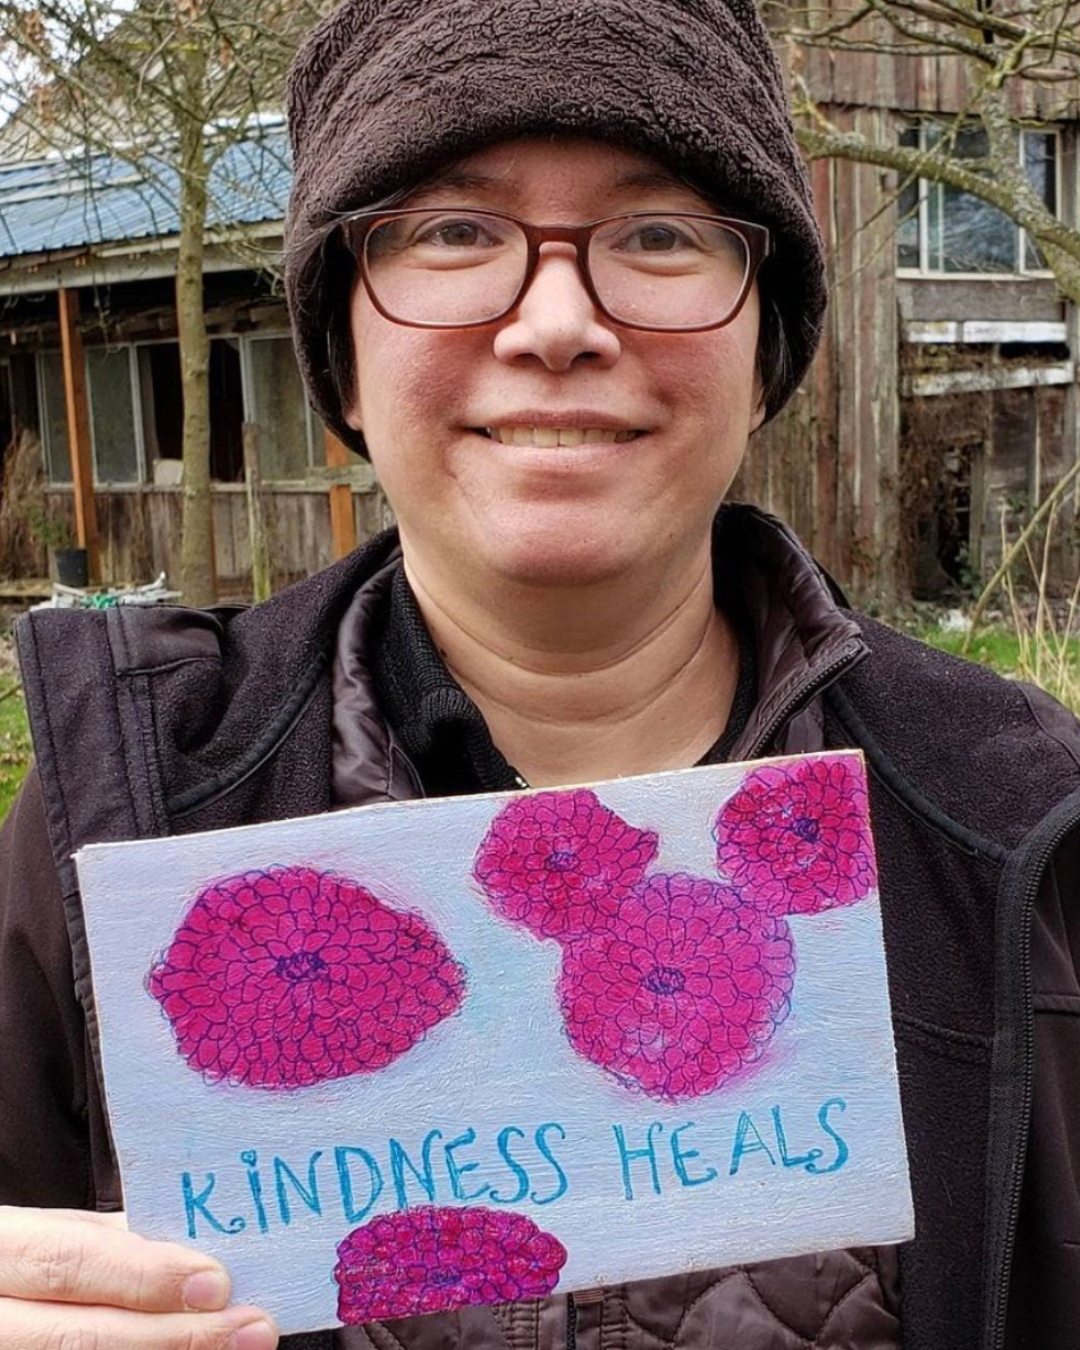 KiNDNESS HEALS